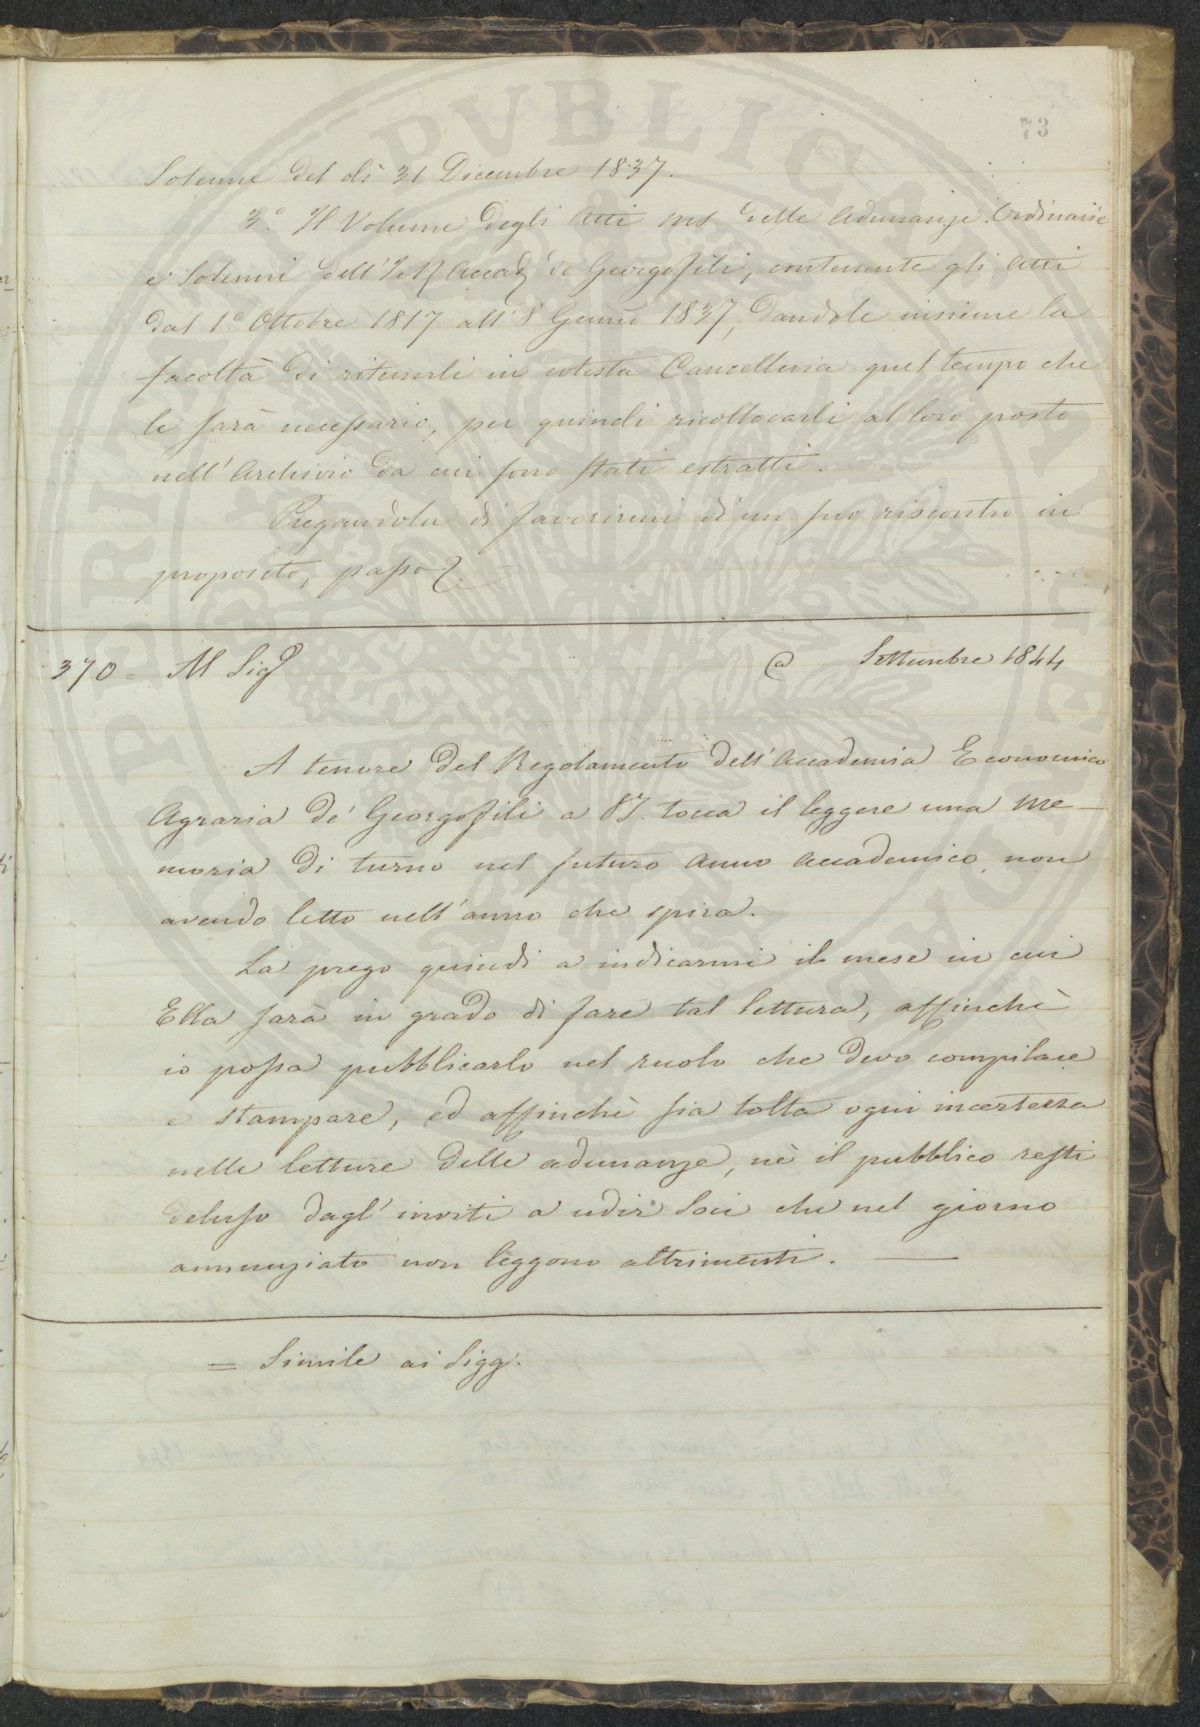 73
Solenne del dì 31 Dicembre 1837.
3.° Il Volume degli Atti ms delle Adunanze Ordinarie
e Solenni dell'I e R Accad de Georgofili, contenente gli Atti
dal 1° Ottobre 1817 all' 8 Genn° 1837, dandole insieme la
facoltà di ritenerli in cotesta Cancelleria quel tempo che
le sarà necessario, per quindi ricollocarli al loro posto
nell'Archivio da cui sono stati estratti.
Pregandola di favorirmi di un suo riscontro in
proposito, passo
370 = Al Sigr Settembre 1844
A tenore del Regolamento dell'Accademia Economico
Agraria de' Georgofili a VS. tocca il leggere una Me-
moria di turno nel futuro Anno Accademico, non
avendo letto nell'anno che spira.
La prego quindi a indicarmi il mese in cui
Ella sarà in grado di fare tal lettura, affinchè
io possa pubblicarlo nel ruolo che devo compilare
e stampare, ed affinchè sia tolta ogni incertezza
nelle letture delle adunanze, nè il pubblico resti
deluso dagl'inviti a udir Soci che nel giorno
annunziato non leggono altrimenti.
= Simile ai Sigg.